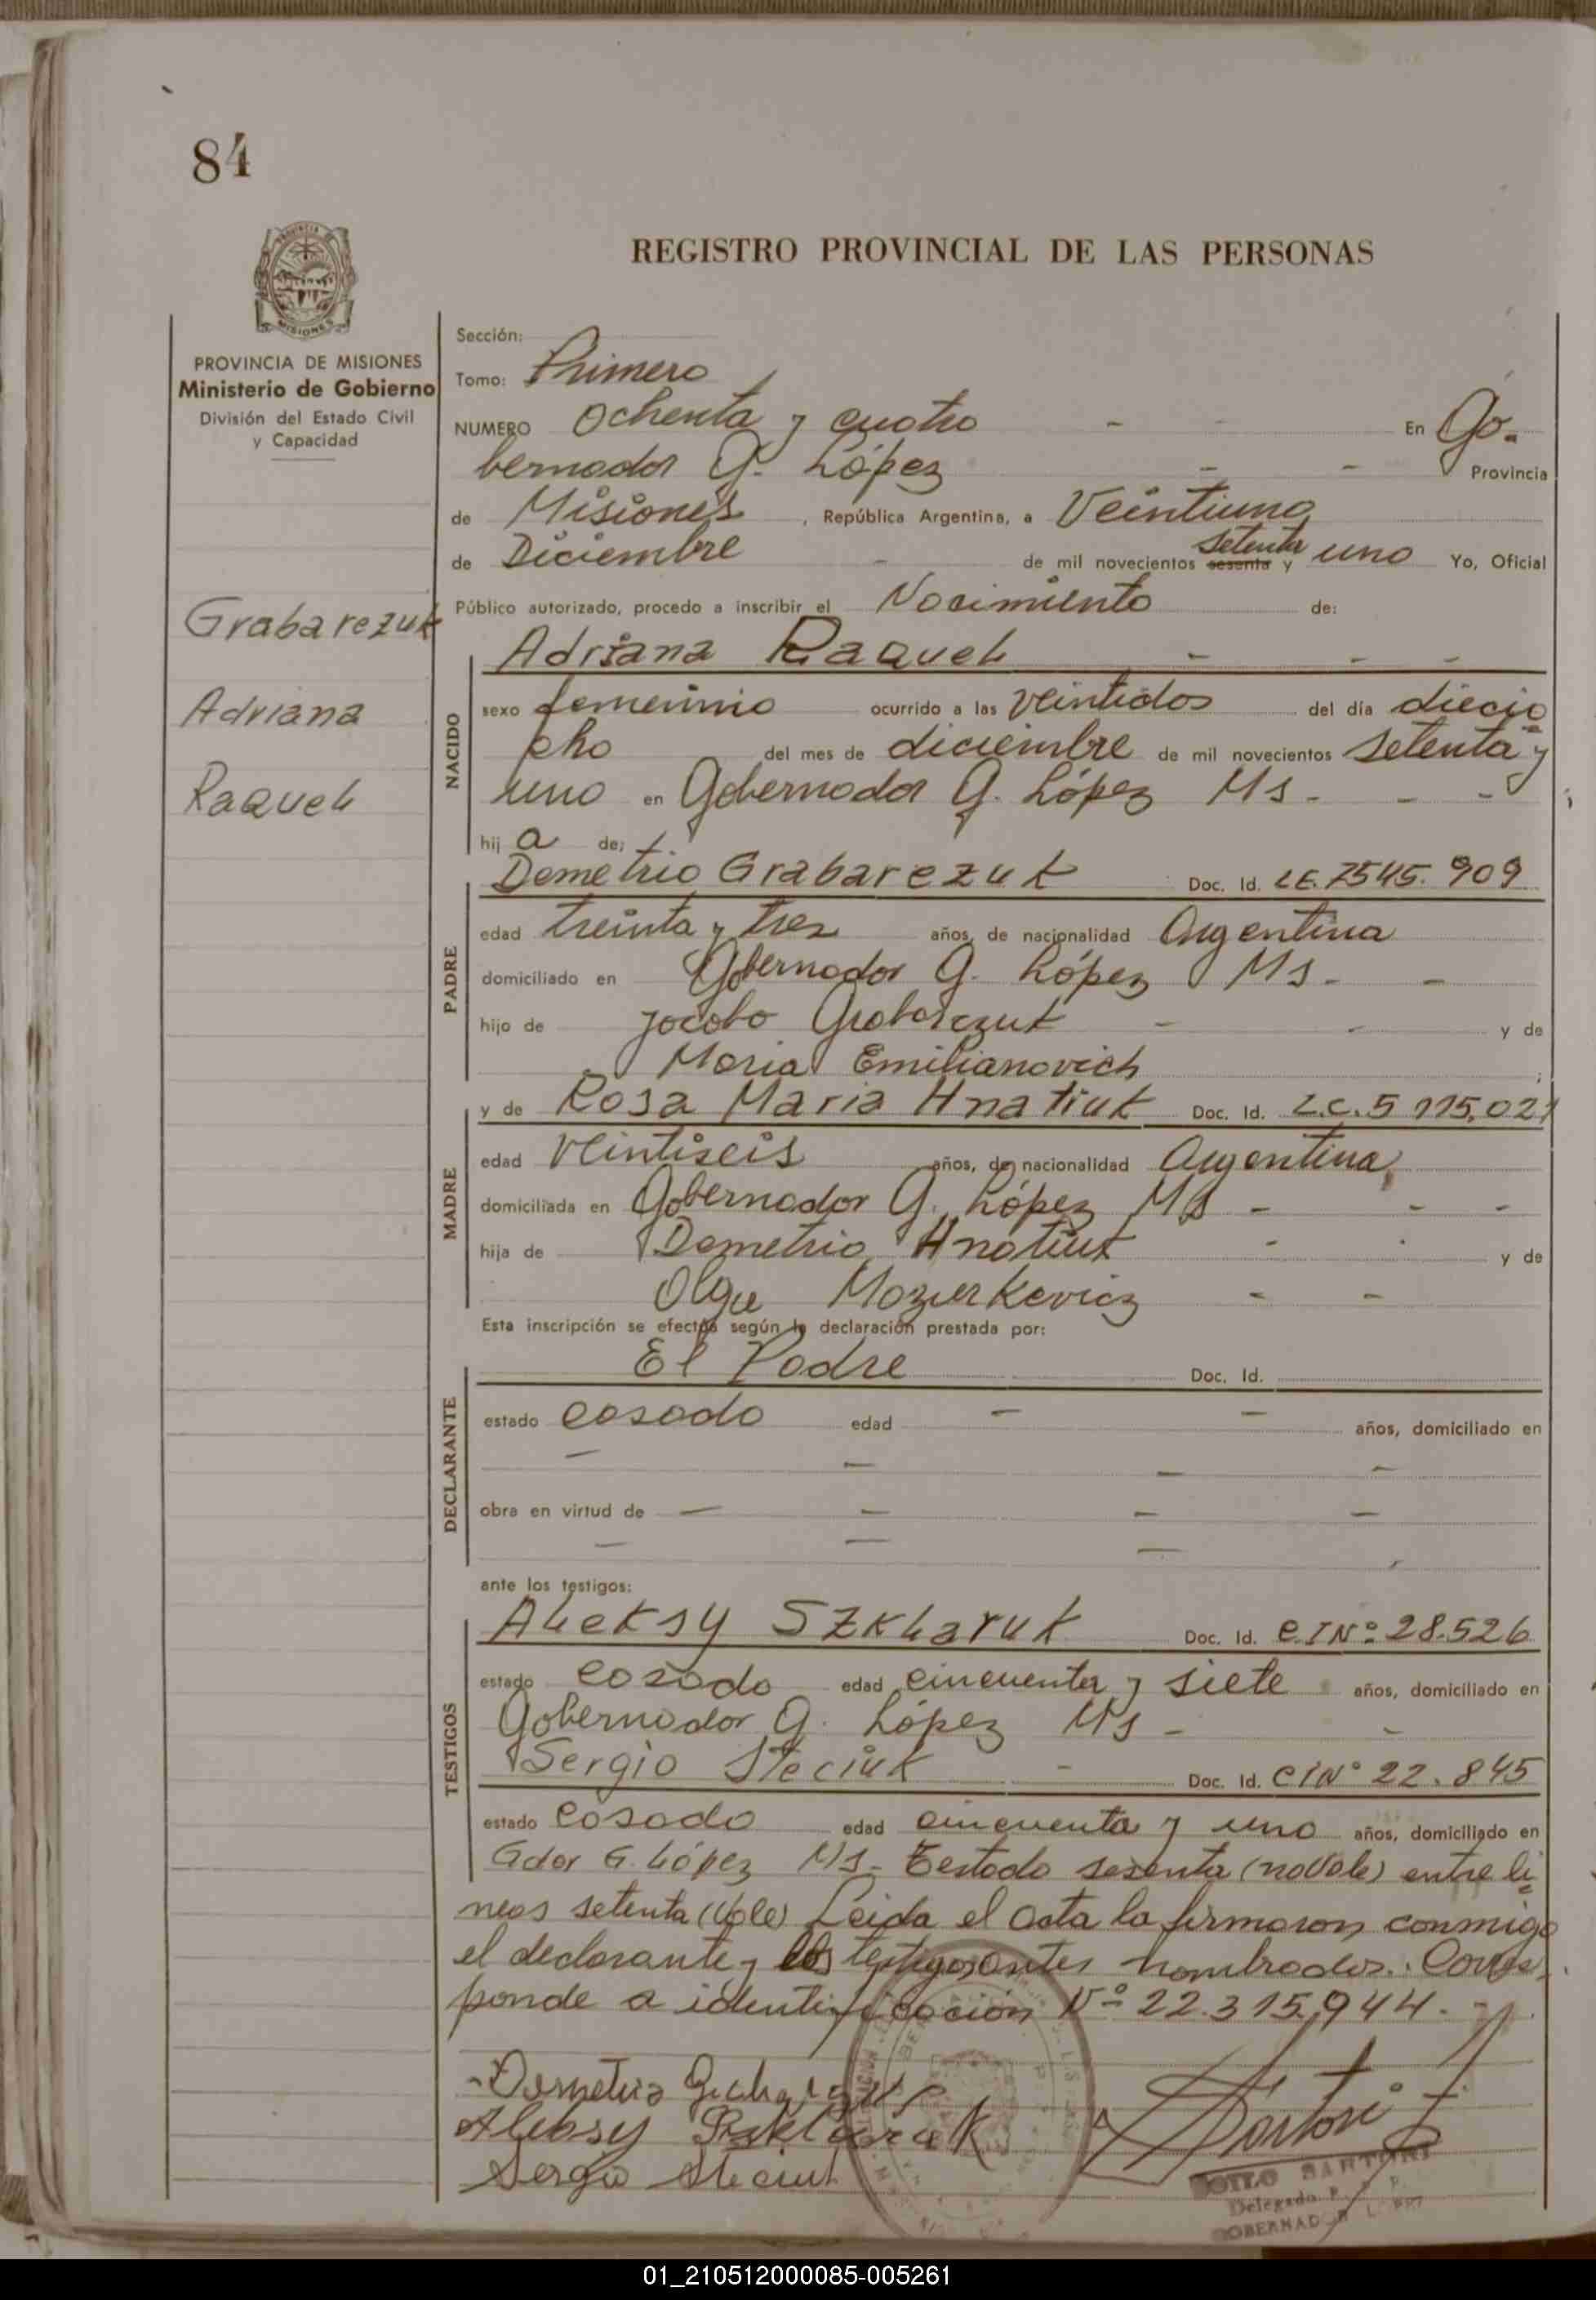 84
REGISTRO PROVINCIAL DE LAS PERSONAS
PROVINCIA DE MISIONES
Ministerio de Gobierno
División del Estado Civil
y Capacidad
Grabarezuk
Adriana
Raquel
Sección:
Tomo: Primero
NUMERO Ochenta y cuatro - - En Go-
bernador G. López - - Provincia
de Misiones, República Argentina, a Veintiuno
de Diciembre - de mil novecientos sesenta setenta y uno Yo, Oficial
Público autorizado, procedo a inscribir el Nacimiento de:
Adriana Raquel - - -
NACIDO
sexo femenino ocurrido a las veintidos del día diecio
cho del mes de diciembre de mil novecientos setenta y
uno en Gobernador G. López Ms - - -
hij a de;
Demetrio Grabarezuk Doc. Id. LE. 7545.909
PADRE
edad treinta y tres años, de nacionalidad Argentina
domiciliado en Gobernador G. López Ms - -
hijo de Jacobo Grabarczuk - - y de
Maria Emilianovich ;
y de Rosa Maria Hnatiuk Doc. Id. L.C. 5 115.021
MADRE
edad veintiseis años, de nacionalidad Argentina
domiciliada en Gobernador G. López Ms - - -
hija de Demetrio Hnatiuk - - y de
Olga Mozurkevicz - -
Esta inscripción se efectúa según la declaración prestada por:
El Padre Doc. Id.
DECLARANTE
estado casado edad - - años, domiciliado en
- - - -
obra en virtud de - - - -
- - -
ante los testigos:
Aleksy Szklaruk Doc. Id. C.I Nº 28.526
TESTIGOS
estado casado edad cincuenta y siete años, domiciliado en
Gobernador G. López Ms - -
Sergio Steciuk - Doc. Id. CI Nº 22.845
estado casado edad cincuenta y uno años, domiciliado en
Gdor G. López Ms - Testado sesenta (no vale) entre li
neas setenta (vale) Leida el acta la firmaron conmigo
el declarante y los testigos antes nombrados. Corres
ponde a identificación Nº 22.315.944. -
Demetrio
Aleksy Szklaruk
Sergio Steciuk
Sartori
ZOILO SARTORI
Delegado R. P. P.
GOBERNADOR LOPEZ
01_210512000085-005261